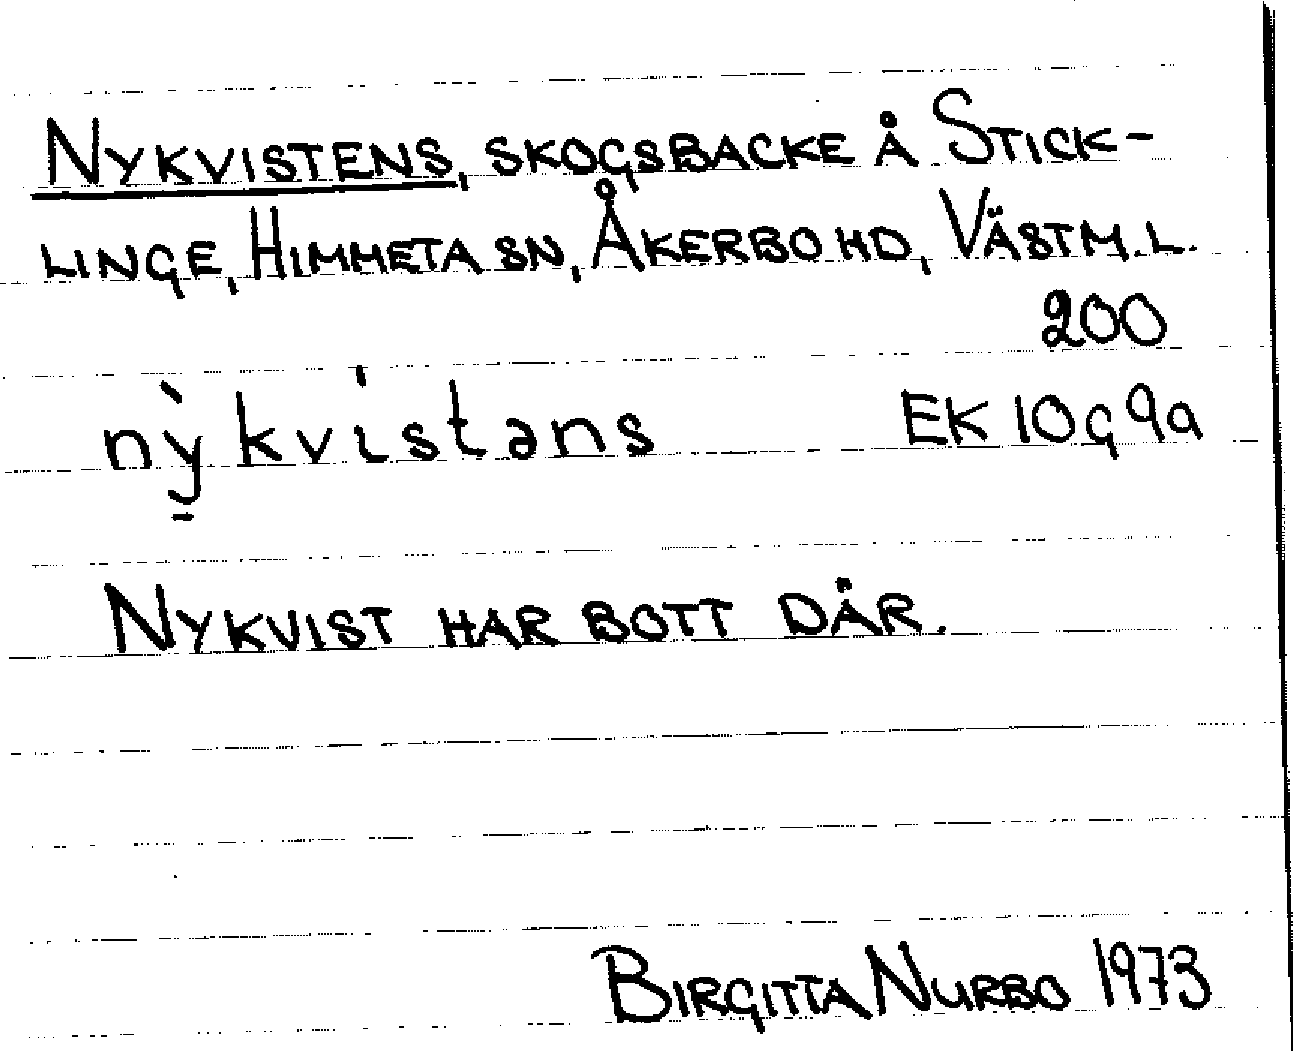 NYKVISTENS, SKOGSBACKE Å STICK-
LINGE, HIMMETA SN, ÅKERBO HD, VÄSTM. L.
200
nỳ̠kvı̍stəns EK 10g 9a
NYKVIST HAR BOTT DÄR.
BIRGITTA NURBO 1973